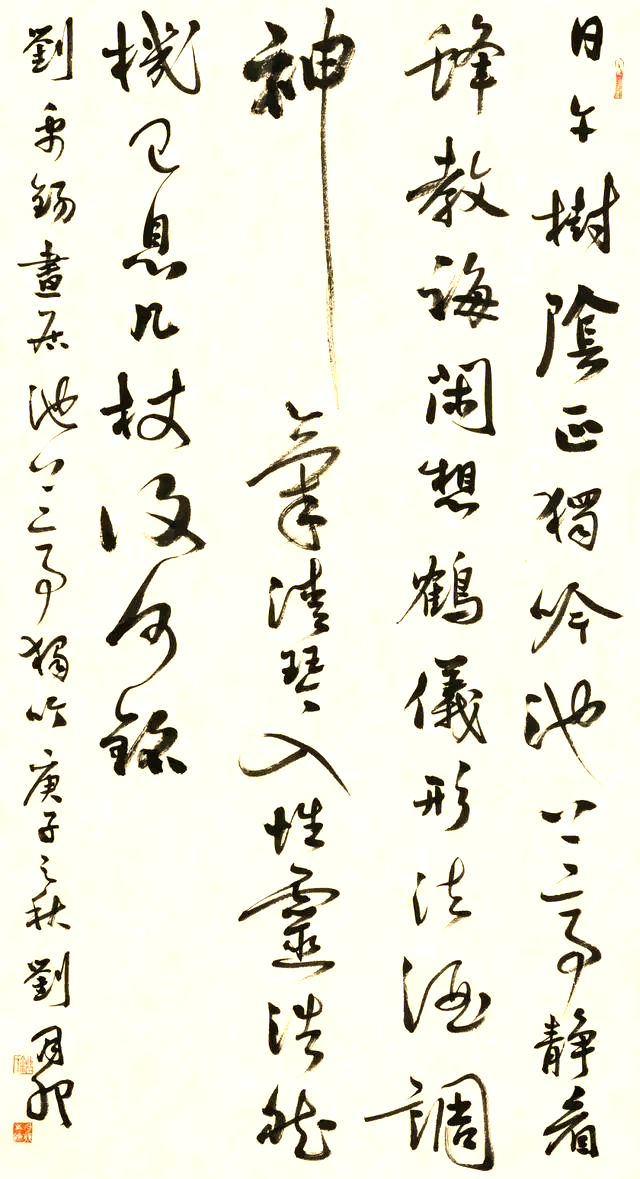 日午樹陰正獨吟池上亭静看
蜂教誨閑想鶴儀形法酒調
神氣清琴入性靈浩然
機已息几杖復何銘
劉禹錫晝居池上亭獨吟庚子之秋劉